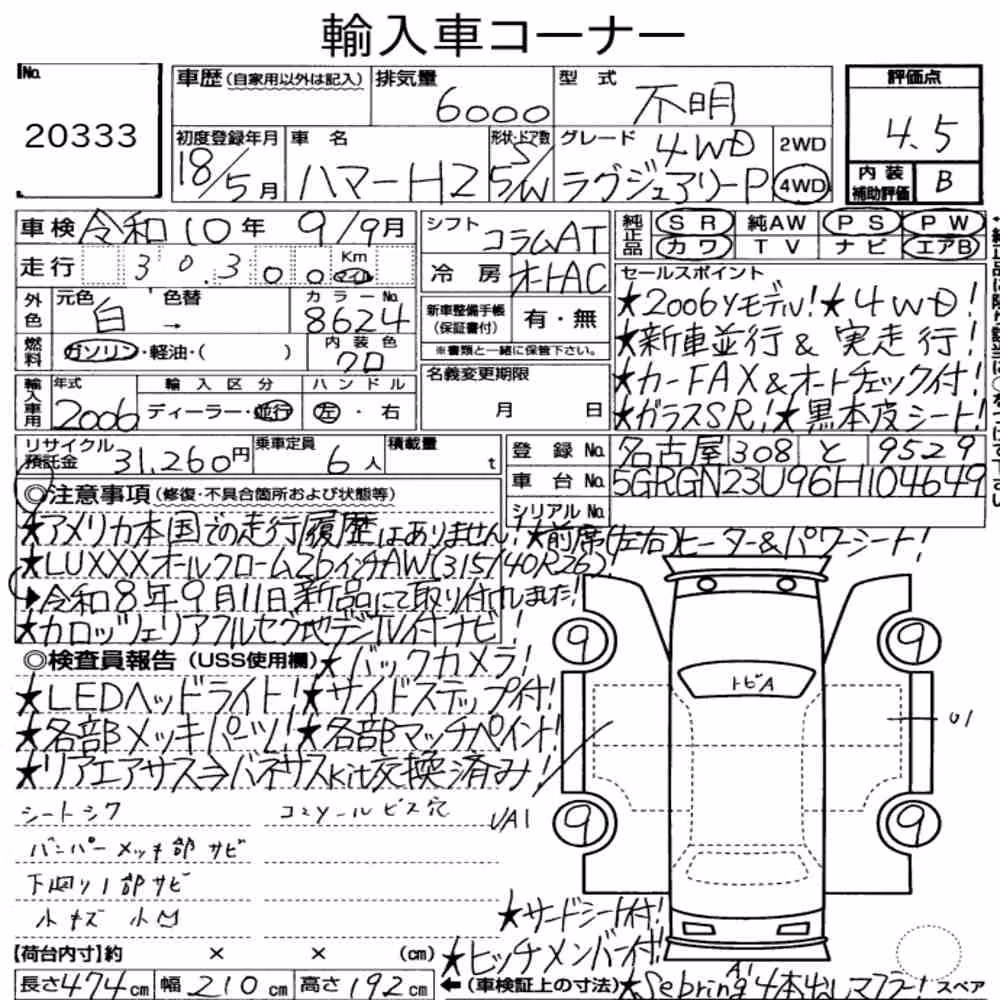 輸入車コーナー
No.
20333
車歴 (自家用以外は記入)
排気量
6000
型式
不明
評価点
4.5
初度登録年月
18/5月
車名
ハマーH2
形状・ドア数
5/W
グレード
4WD
ラグジュアリーP
2WD
4WD
内装
補助評価
B
車検 令和10年 9/9月
走行 30,300 Km マイル
外色
元色 白
色替 →
カラーNo.
8624
燃料
ガソリン・軽油・( )
内装色
クロ
輸入車用
年式
2006
輸入区分
ディーラー・並行
ハンドル
左・右
シフト
コラムAT
冷房
オートAC
新車整備手帳
(保証書付)
有・無
※書類と一緒に保管下さい。
名義変更期限
月 日
純正品
SR 純AW PS PW
カワ TV ナビ エアB
セールスポイント
★2006yモデル!★4WD!
★新車並行&実走行!
★カーFAX&オートチェック付!
★ガラスSR!★黒本皮シート!
リサイクル
預託金 31,260円
乗車定員
6人
積載量
t
登録No.
名古屋 308 と 9529
車台No.
5GRGN23U96H104649
シリアルNo.
◎注意事項 (修復・不具合箇所および状態等)
★アメリカ本国での走行履歴はありません!★前席(左右)ヒーター&パワーシート!
★LUXXXオールクローム26インチAW(315/40R26)!
▶令和8年9月11日新品にて取り付けしました!
★カロッツェリアフルセグ地デジTV付ナビ!
◎検査員報告 (USS使用欄)★バックカメラ!
★LEDヘッドライト!★サイドステップ付!
★各部メッキパーツ!★各部マッチペイント!
★リアエアサス⇒バネサスkit交換済み!
シートシワ
コンソールビス穴
バンパーメッキ部サビ
下廻り1部サビ
小キズ 小凹
9
9
9
9
トビA
U1
UA1
A1
★サードシート付!
★ヒッチメンバー付!
【荷台内寸】約 × × (cm)
長さ474cm 幅210cm 高さ192cm
←(車検証上の寸法)
★Sebring 4本出しマフラー!
スペア